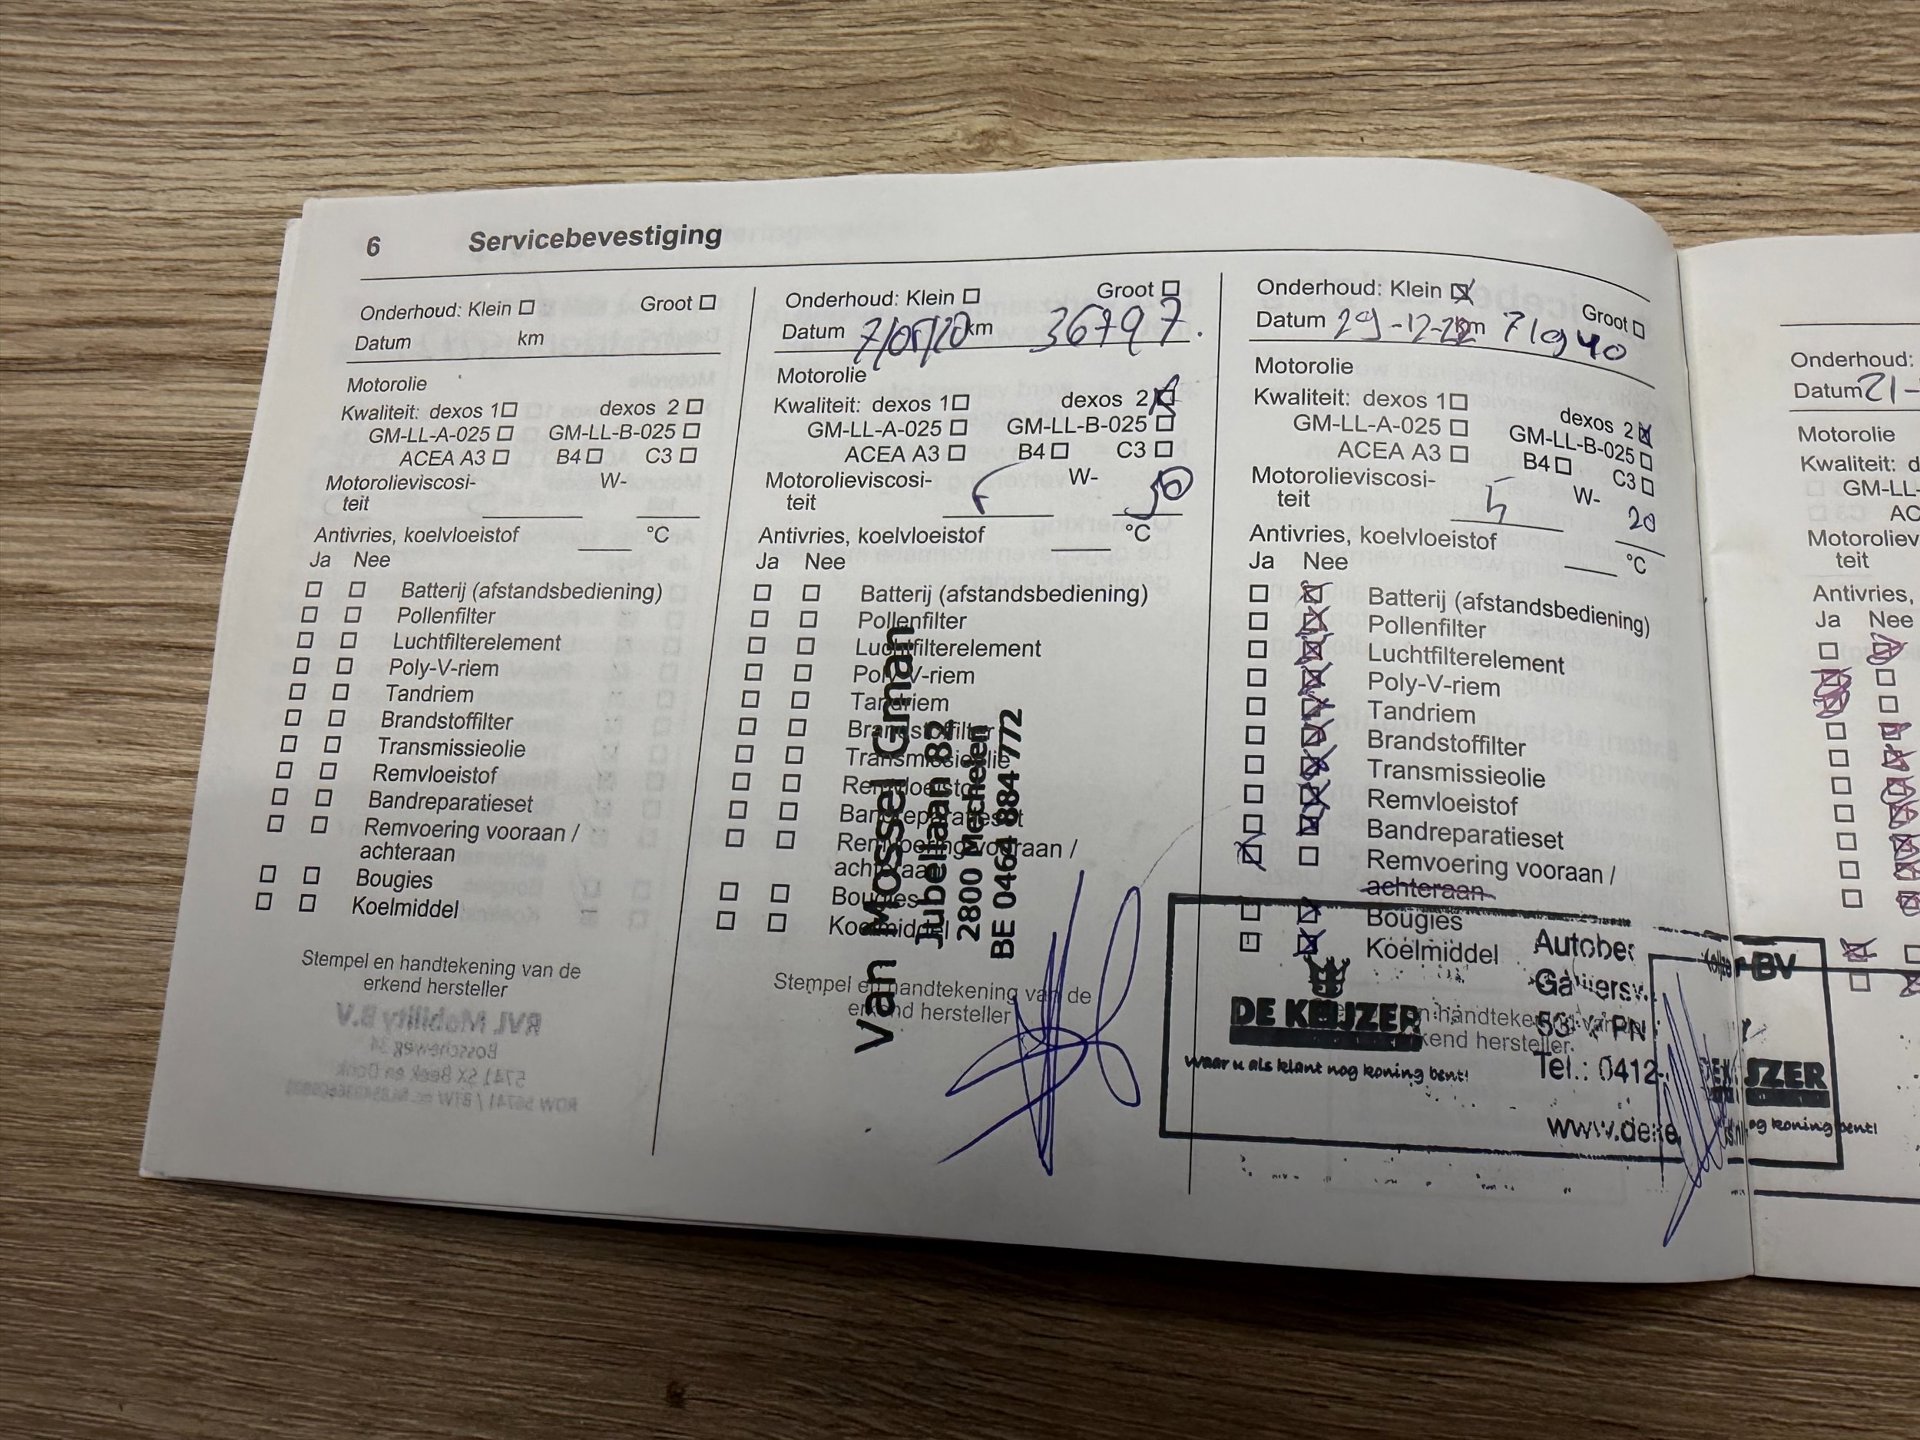 6 Servicebevestiging
Onderhoud: Klein Groot
Datum km
Motorolie
Kwaliteit: dexos 1 dexos 2
GM-LL-A-025 GM-LL-B-025
ACEA A3 B4 C3
Motorolieviscosi- W-
teit
Antivries, koelvloeistof °C
Ja Nee
Batterij (afstandsbediening)
Pollenfilter
Luchtfilterelement
Poly-V-riem
Tandriem
Brandstoffilter
Transmissieolie
Remvloeistof
Bandreparatieset
Remvoering vooraan /
achteraan
Bougies
Koelmiddel
Stempel en handtekening van de
erkend hersteller
Onderhoud: Klein Groot
Datum 7/05/20 km 36797.
Motorolie
Kwaliteit: dexos 1 dexos 2
GM-LL-A-025 GM-LL-B-025
ACEA A3 B4 C3
Motorolieviscosi- W-
teit
Antivries, koelvloeistof °C
Ja Nee
Batterij (afstandsbediening)
Pollenfilter
Luchtfilterelement
Poly-V-riem
Tandriem
Brandstoffilter
Transmissieolie
Remvloeistof
Bandreparatieset
Remvoering vooraan /
achteraan
Bougies
Koelmiddel
Van Mossel Gman
Jubellaan 82
2800 Mechelen
BE 0464 884 772
Stempel en handtekening van de
erkend hersteller
Onderhoud: Klein Groot
Datum 29-12-22 km 71940
Motorolie
Kwaliteit: dexos 1 dexos 2
GM-LL-A-025 GM-LL-B-025
ACEA A3 B4 C3
Motorolieviscosi- 5 W- 20
teit
Antivries, koelvloeistof °C
Ja Nee
Batterij (afstandsbediening)
Pollenfilter
Luchtfilterelement
Poly-V-riem
Tandriem
Brandstoffilter
Transmissieolie
Remvloeistof
Bandreparatieset
Remvoering vooraan /
achteraan
Bougies
Koelmiddel
Autober BV
DE KEIJZER
handtekening van de
erkend hersteller.
waar u als klant nog koning bent!
Tel.: 0412-
Onderhoud:
Datum 21-
Motorolie
Kwaliteit: d
GM-LL-
AC
Motoroliev
teit
Antivries,
Ja Nee
JZER
og koning bent!